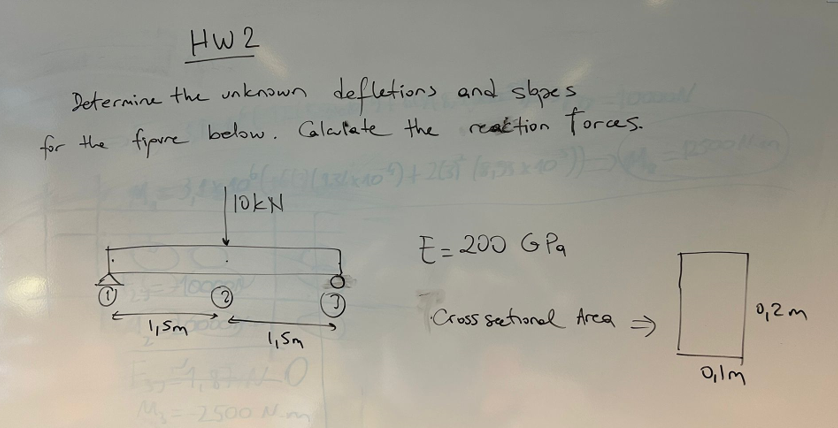 HW2
Determine the unknown defletions and slopes
for the figure below. Calculate the reaction forces.
10kN
E = 200 GPa
Cross sectional Area ⇒
0,2m
0,1m
1
2
3
1,5m
1,5m
M₃ = -2500 N.m